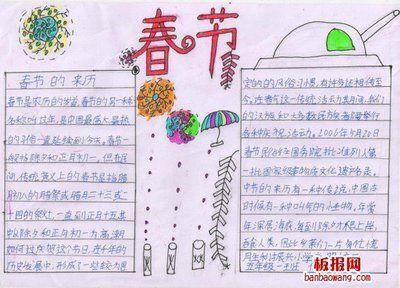 春节
春节的来历
春节是农历的岁首,春节的另一种
名称叫过年,是中国最盛大、最热
闹
一直延续到今天。春节一
般指除夕和正月初一。但在民
间,传统意义上的春节是指腊
腊祭或腊月二十三或二
十四的祭灶,一直到正月十五,其
中以除夕和正月初一为高潮。
如何过庆贺这个节日,在千年的
历史发展中,形成了一些较为固
定的风俗习惯,有许多还相传至
今。在春节这一传统节日期间,我们
的汉族和大多数少数民族都要举行
各种庆祝活动。2006年5月20日
春节民俗经国务院批准列入第
一批国家级非物质文化遗产名录。
春节的来历有一种传说,中国古
时候有一种叫"年"的
年深居海底,每到除夕才爬上岸,
吞食
五年级一班
板报网
banbaowang.com